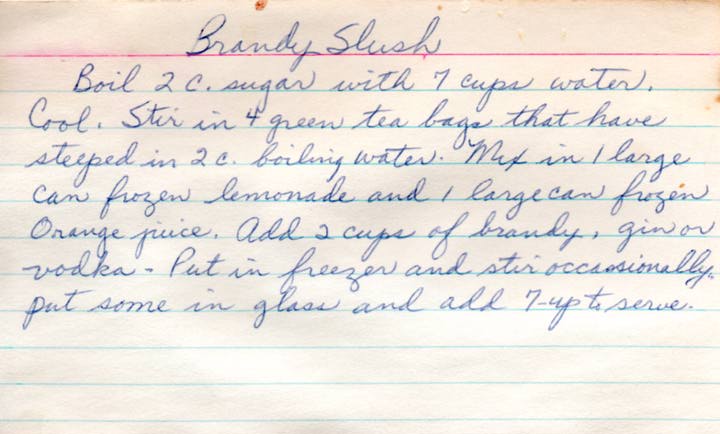 Brandy Slush
Boil 2 c. sugar with 7 cups water.
Cool. Stir in 4 green tea bags that have
steeped in 2 c. boiling water. Mix in 1 large
can frozen lemonade and 1 large can frozen
Orange juice. Add 2 cups of brandy, gin or
vodka - Put in freezer and stir occassionally.
put some in glass and add 7-up to serve.